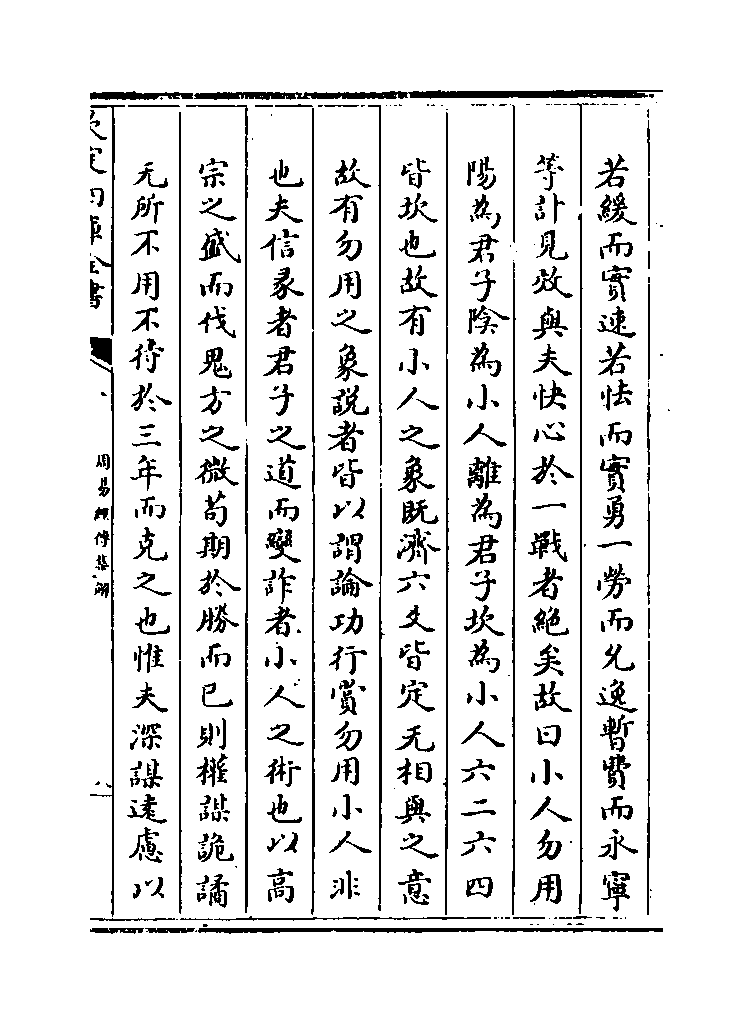 若緩而實速若怯而實勇一勞而久逸暫費而永寧
等計見效與夫快心於一戰者絶矣故曰小人勿用
陽為君子隂為小人離為君子坎為小人六二六四
皆坎也故有小人之象既濟六爻皆定无相與之意
故有勿用之象説者皆以謂論功行賞勿用小人非
也夫信彖者君子之道而變詐者小人之術也以髙
宗之盛而伐鬼方之微茍期於勝而已則權謀詭譎
无所不用不待於三年而克之也惟夫深謀逺慮以
欽定四庫全書
周易經傳集解
八